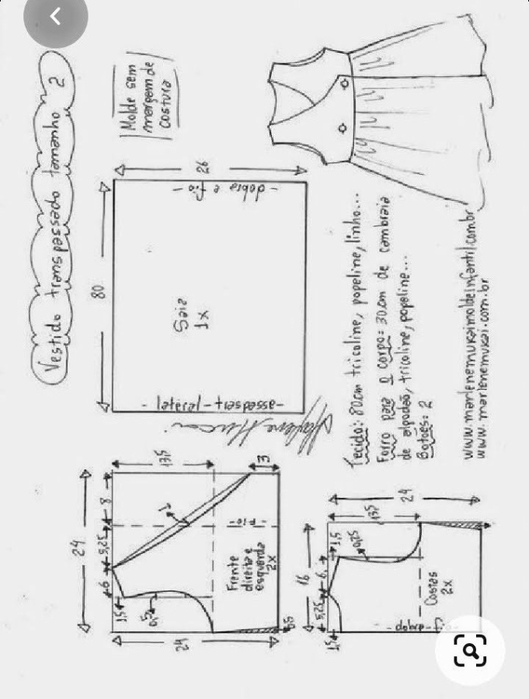 Vestido transpassado tamanho 2
Molde sem
margem de
costura
80
26
- dobra e fio -
Saia
1x
- transpassado - lateral -
Tecido: 80cm tricoline, popeline, linho...
Forro para o corpo: 30cm de cambraia
de algodão, tricoline, popeline...
Botões: 2
www.marlenemukaimoldeinfantil.com.br
www.marlenemukai.com.br
24
6
5,25
8
13,5
3
1
1,5
- fio -
Frente
direita e
esquerda
2x
24
16
5,25
6
1,5
13,5
24
0,75
1,5
Costas
2x